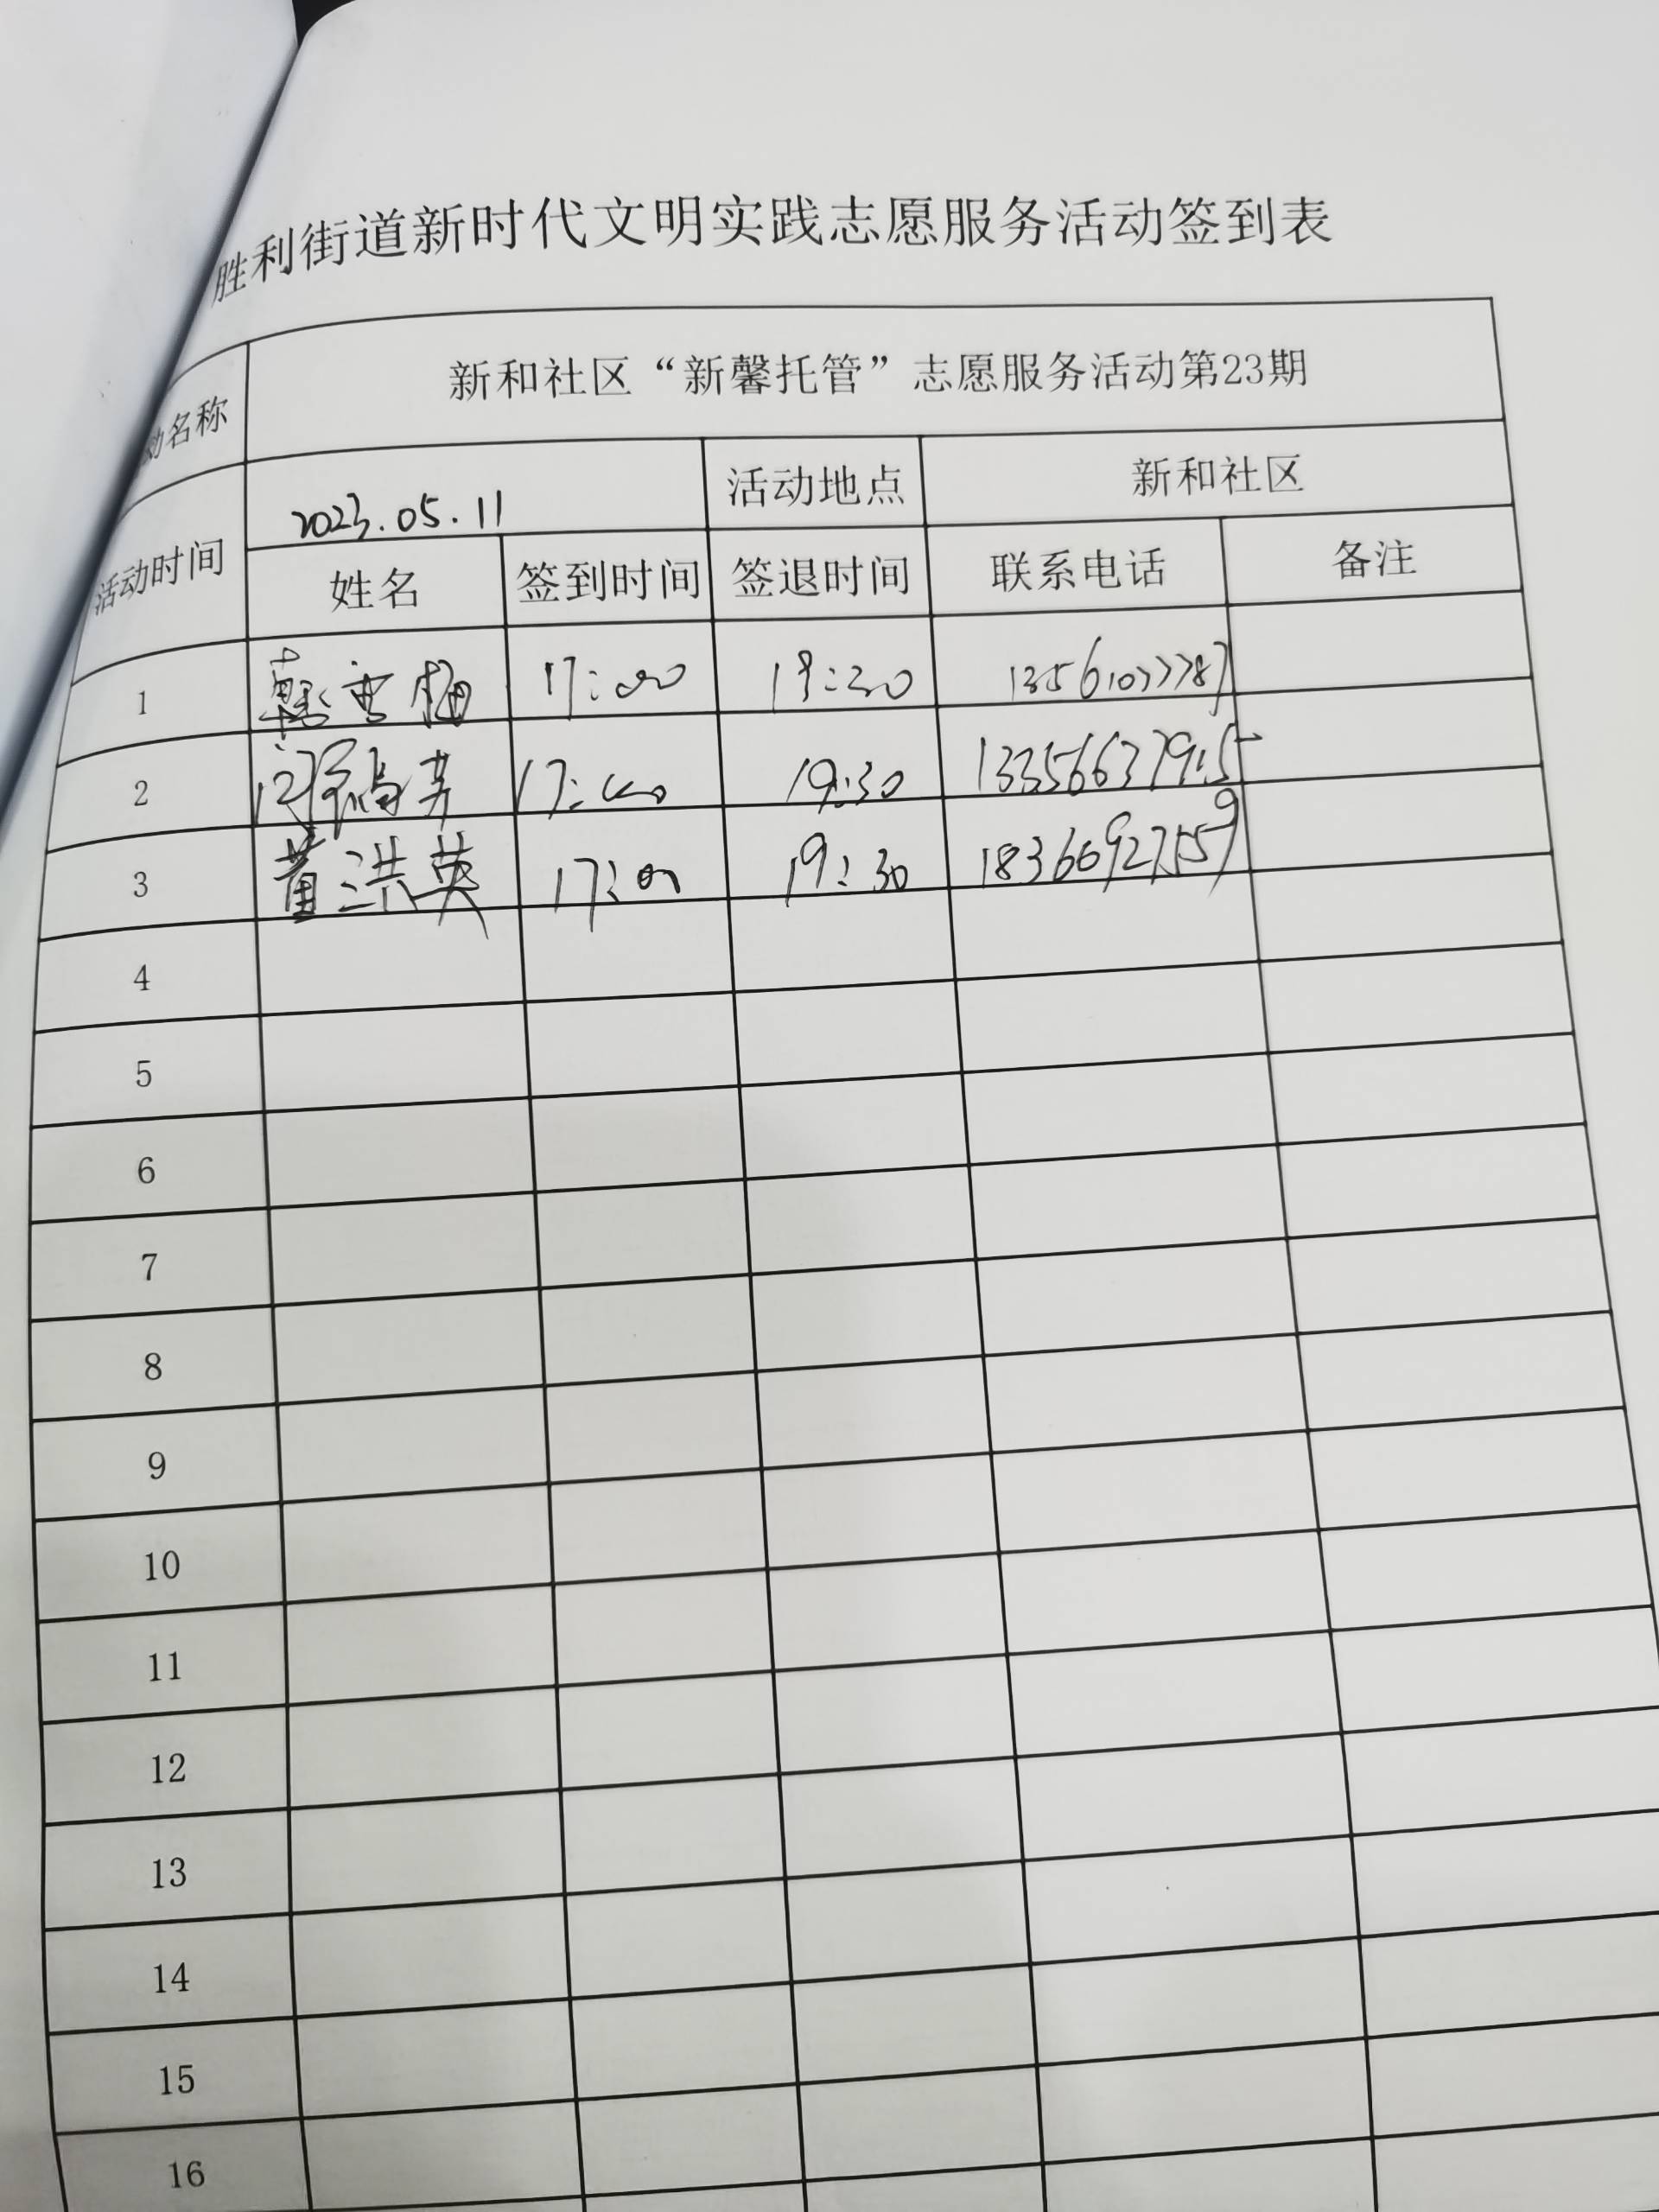 胜利街道新时代文明实践志愿服务活动签到表
动名称 新和社区“新馨托管”志愿服务活动第23期
活动时间 2023.05.11 活动地点 新和社区
姓名 签到时间 签退时间 联系电话 备注
1 17:00 19:30
2 17:00 19:30 13356637915
3 董洪英 17:00 19:30 18366927559
4
5
6
7
8
9
10
11
12
13
14
15
16